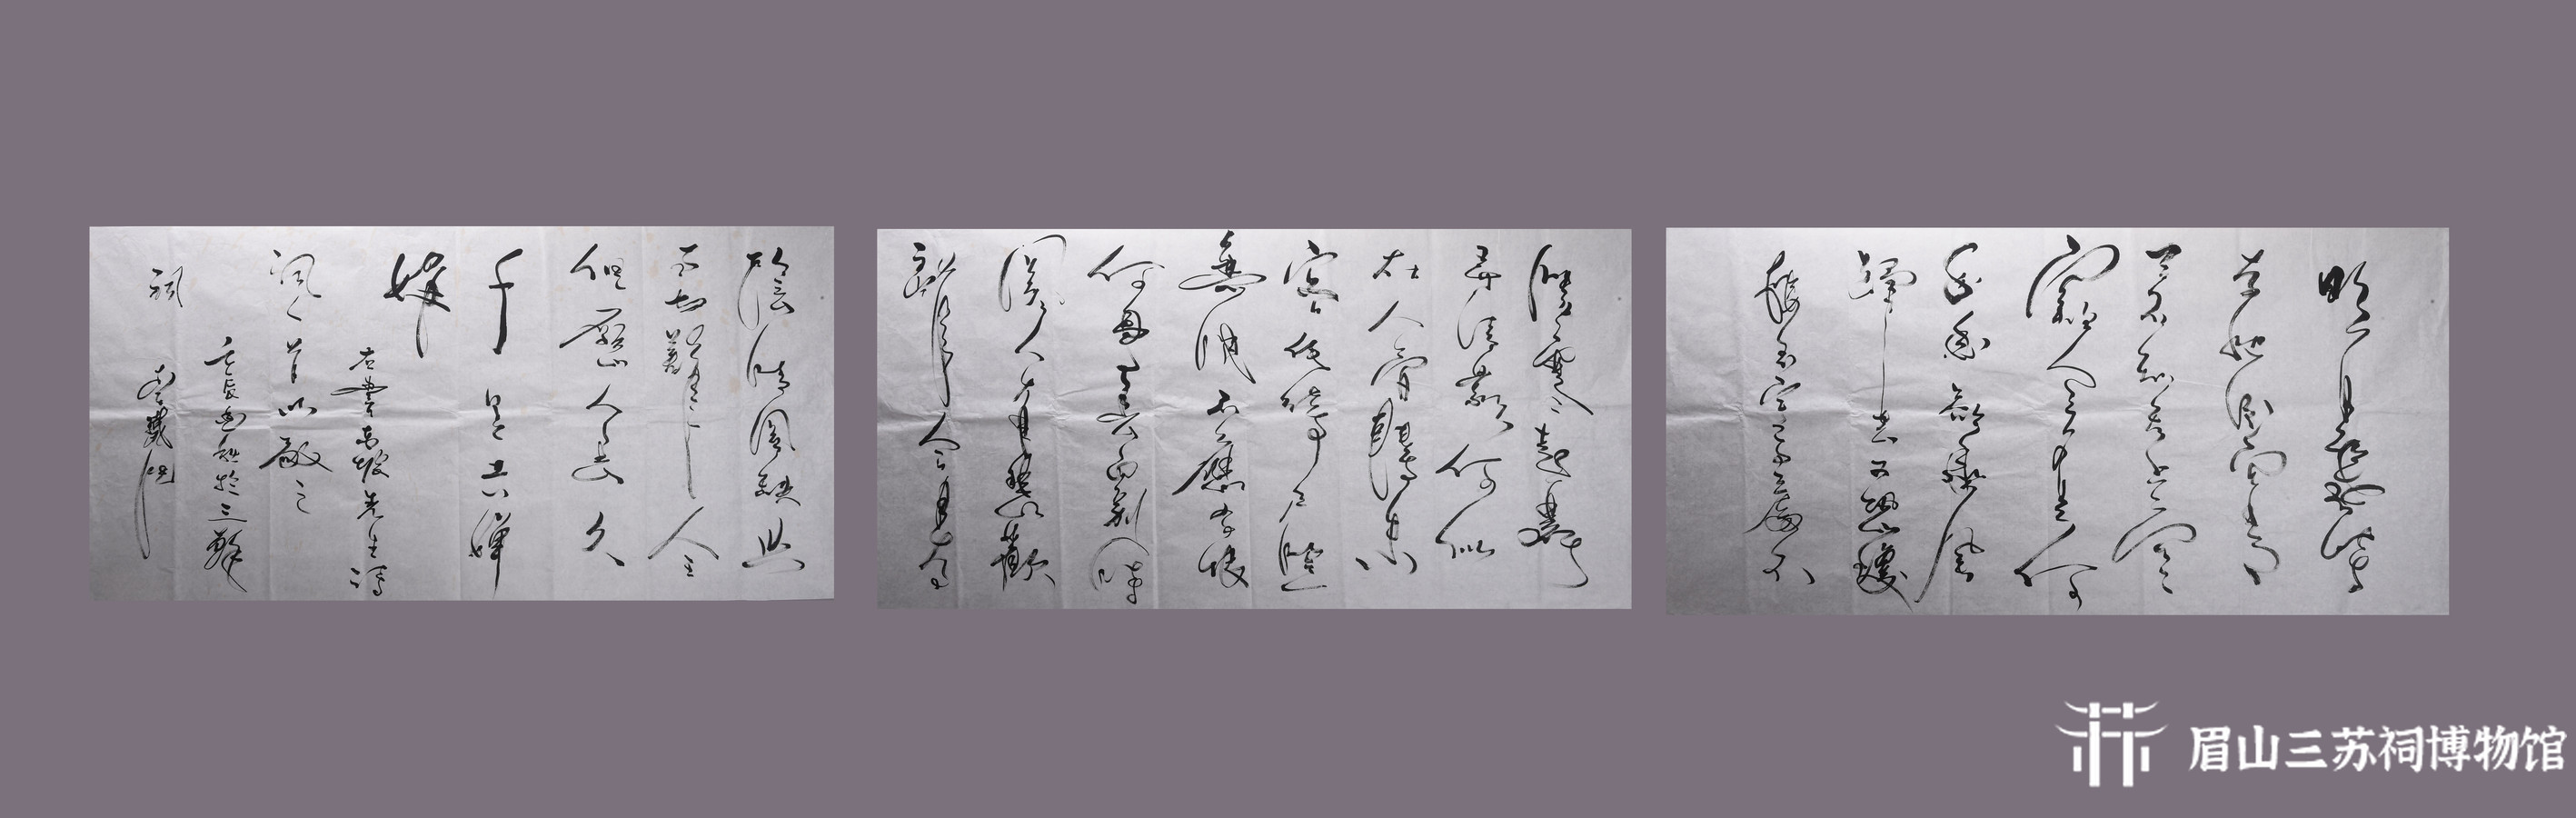 明月幾時
有把酒問青
天不知天上宮
闕今夕是何
年我欲乘風
歸去又恐瓊
樓玉宇高處不
勝寒起舞
弄清影何似
在人間轉朱
閣低綺戶照
無眠不應有恨
何事長向別時
圓人有悲歡
離合月有
陰晴圓缺此
事古難全
但願人長久
千里共嬋
娟
右書東坡先生詩
詞一首以敬之
壬辰 於三蘇
祠
眉山三苏祠博物馆